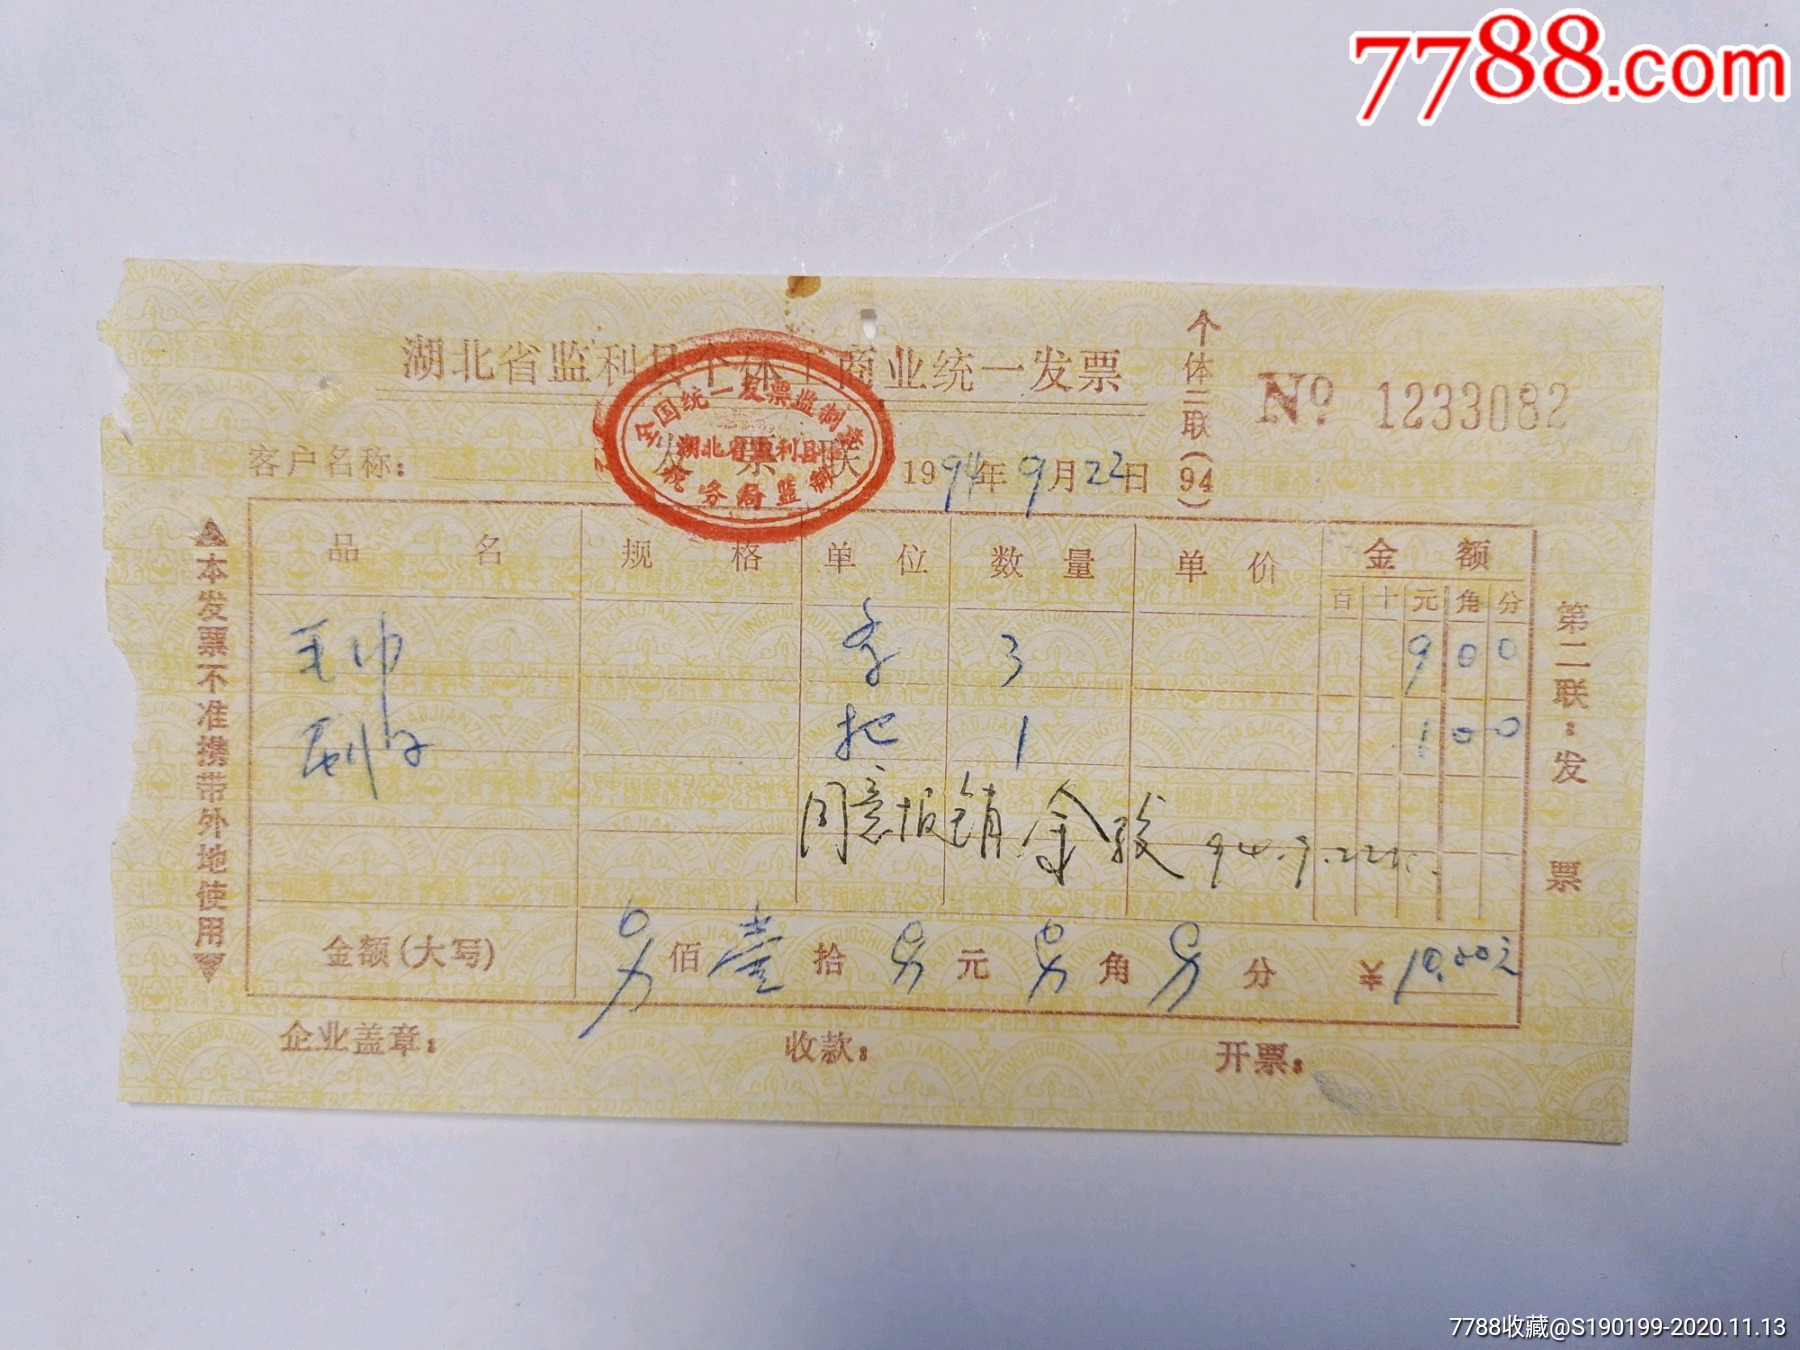 7788.com
湖北省监利县个体工商业统一发票
个体二联(94)
№ 1233082
全国统一发票监制章
湖北省监利县
税务局监制
发票联
客户名称:
1994年9月22日
▲本发票不准携带外地使用▼
品名 规格 单位 数量 单价 金额
百 十 元 角 分
毛巾 条 3 9 0 0
刷子 把 1 1 0 0
同意报销 94.9.22
金额(大写) 另佰壹拾另元另角另分 ¥10.00元
第二联:发票
企业盖章: 收款: 开票:
7788收藏@S190199-2020.11.13